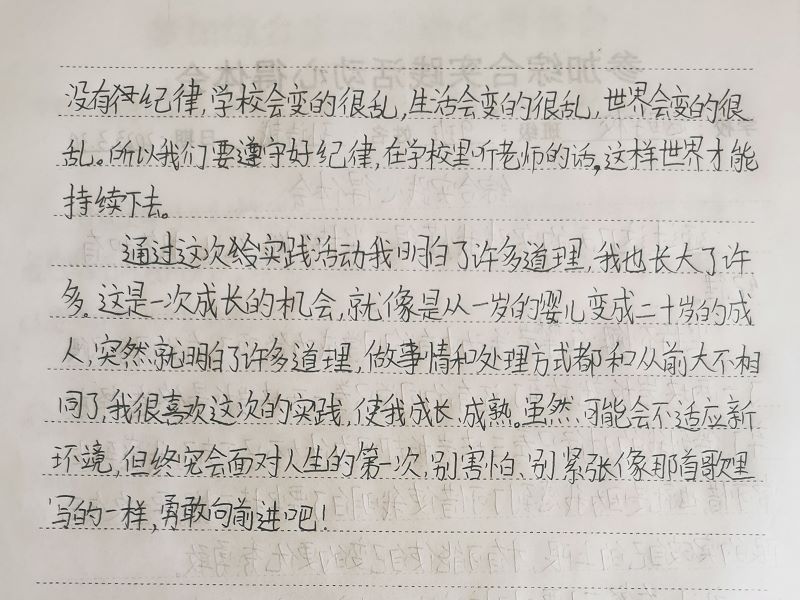 没有纪律,学校会变的很乱,生活会变的很乱,世界会变的很
乱。所以我们要遵守好纪律,在学校里听老师的话,这样世界才能
持续下去。
通过这次给实践活动我明白了许多道理,我也长大了许
多。这是一次成长的机会,就像是从一岁的婴儿变成二十岁的成
人,突然就明白了许多道理,做事情和处理方式都和从前大不相
同了,我很喜欢这次的实践,使我成长、成熟。虽然可能会不适应新
环境,但终究会面对人生的第一次,别害怕、别紧张像那首歌里
写的一样,勇敢向前进吧!